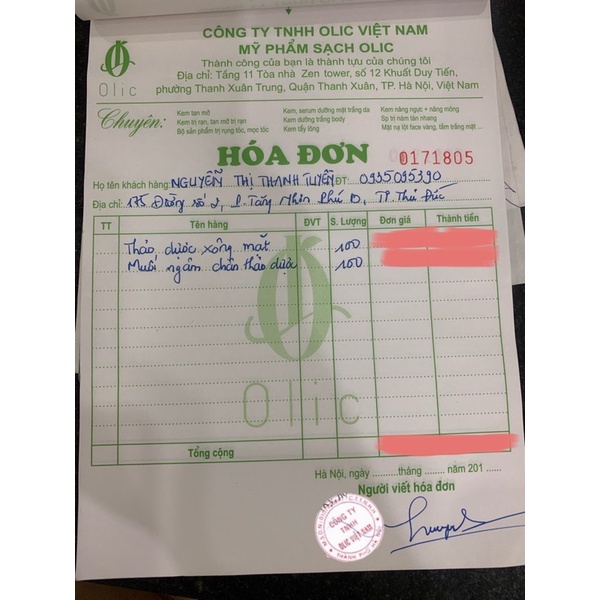 CÔNG TY TNHH OLIC VIỆT NAM
MỸ PHẨM SẠCH OLIC
Thành công của bạn là thành tựu của chúng tôi
Địa chỉ: Tầng 11 Tòa nhà Zen tower, số 12 Khuất Duy Tiến,
phường Thanh Xuân Trung, Quận Thanh Xuân, TP. Hà Nội, Việt Nam
Olic
Chuyên:
Kem tan mỡ
Kem trị rạn, tan mỡ trị rạn
Bộ sản phẩm trị rụng tóc, mọc tóc
Kem, serum dưỡng mặt trắng da
Kem dưỡng trắng body
Kem tẩy lông
Kem nâng ngực + nâng mông
Sp trị nám tàn nhang
Mặt nạ lột face vàng, tắm trắng mặt ...
HÓA ĐƠN 0171805
Họ tên khách hàng: NGUYỄN THỊ THANH TUYỀN ĐT: 0935095390
Địa chỉ: 175 Đường số 2, P. Tăng Nhơn Phú B, TP Thủ Đức
TT Tên hàng ĐVT S. Lượng Đơn giá Thành tiền
Thảo dược xông mặt 100
Muối ngâm chân thảo dược 100
Olic
Tổng cộng
Hà Nội, ngày ......... tháng ......... năm 201 ......
Người viết hóa đơn
CÔNG TY
TNHH
OLIC VIỆT NAM